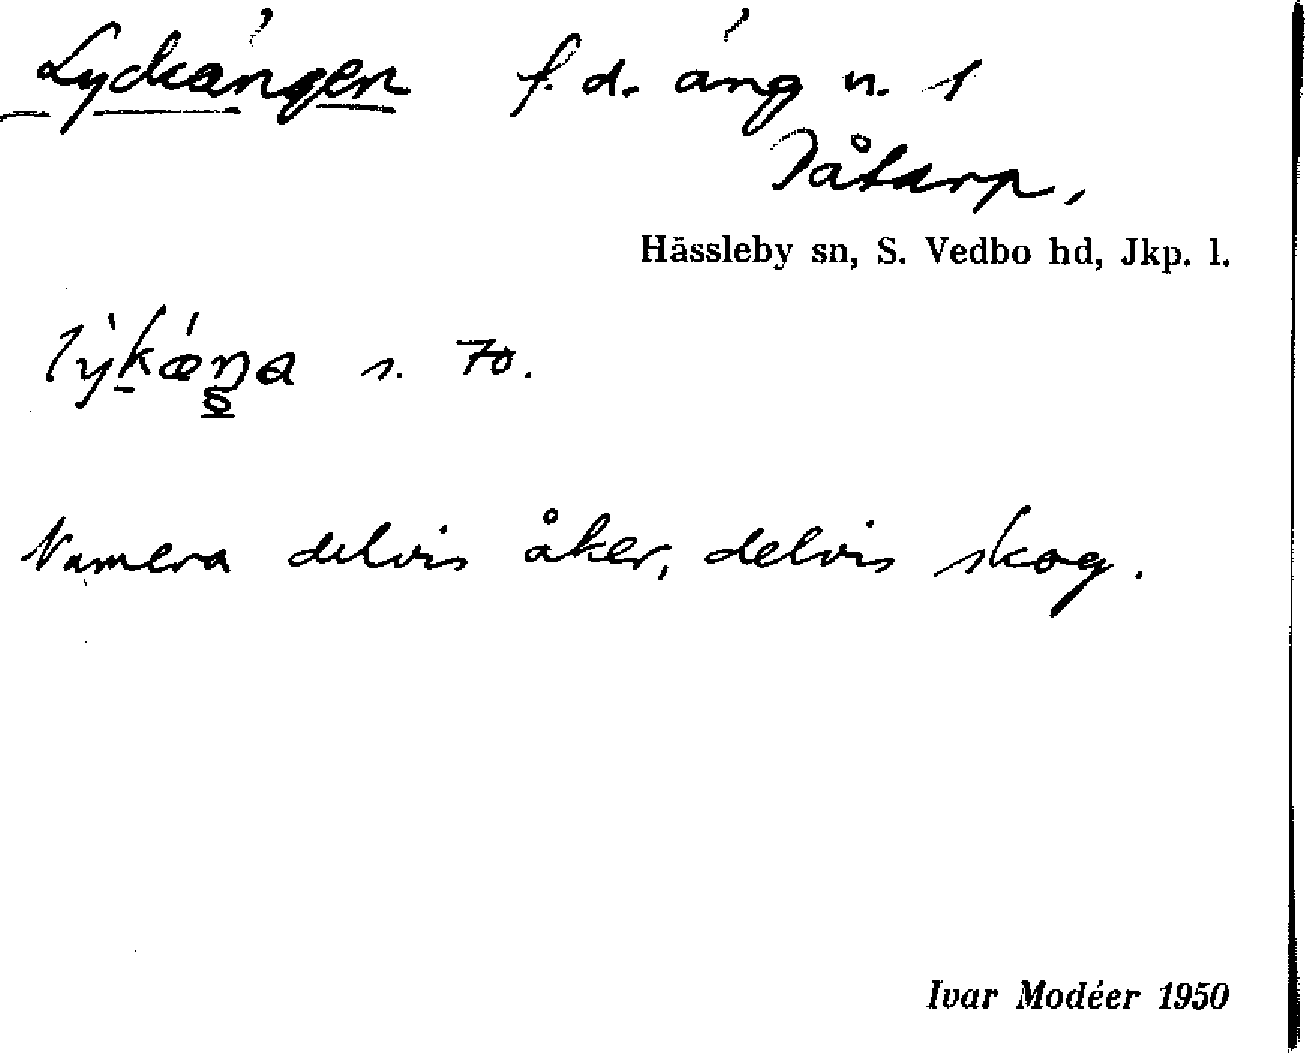 Lyckängen f. d. äng n. 1
Påtarp.
Hässleby sn, S. Vedbo hd, Jkp. l.
s. 70.
Numera delvis åker, delvis skog.
Ivar Modéer 1950